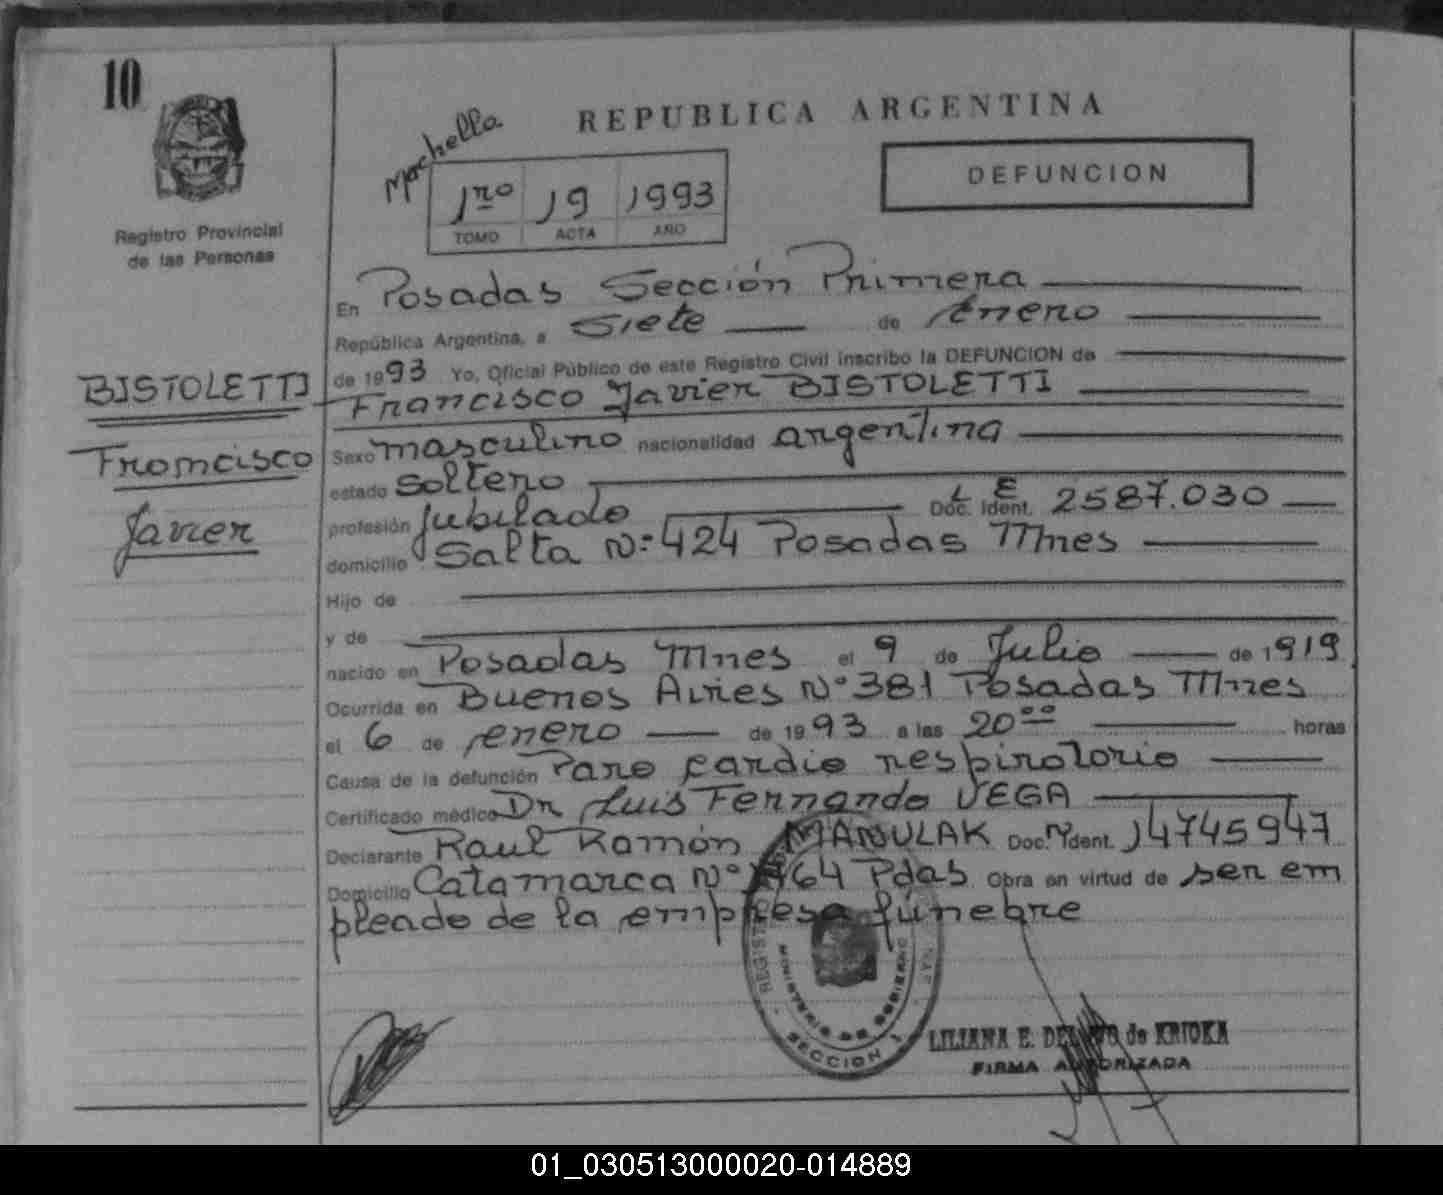 10
Registro Provincial
de las Personas
BISTOLETTI
Francisco
Javier
REPUBLICA ARGENTINA
DEFUNCION
1ro 19 1993
TOMO ACTA AÑO
En Posadas Sección Primera
República Argentina, a Siete de Enero
de 1993 Yo, Oficial Público de este Registro Civil inscribo la DEFUNCION de
Francisco Javier BISTOLETTI
Sexo masculino nacionalidad argentina
estado soltero
profesión Jubilado Doc. Ident. L E 2587.030
domicilio Salta Nº 424 Posadas Mnes
Hijo de
y de
nacido en Posadas Mnes el 9 de Julio de 1919
Ocurrida en Buenos Aires Nº 381 Posadas Mnes
el 6 de enero de 1993 a las 20 00 horas
Causa de la defunción Paro cardio respiratorio
Certificado médico Dr Luis Fernando VEGA
Declarante Raul Ramón MANULAK Doc. Ident. 14745947
Domicilio Catamarca Nº 64 Pdas Obra en virtud de ser em
pleado de la empresa fúnebre
MINISTERIO DE GOBIERNO
SECCION 1
LILIANA E. de KRIOKA
FIRMA AUTORIZADA
01_030513000020-014889